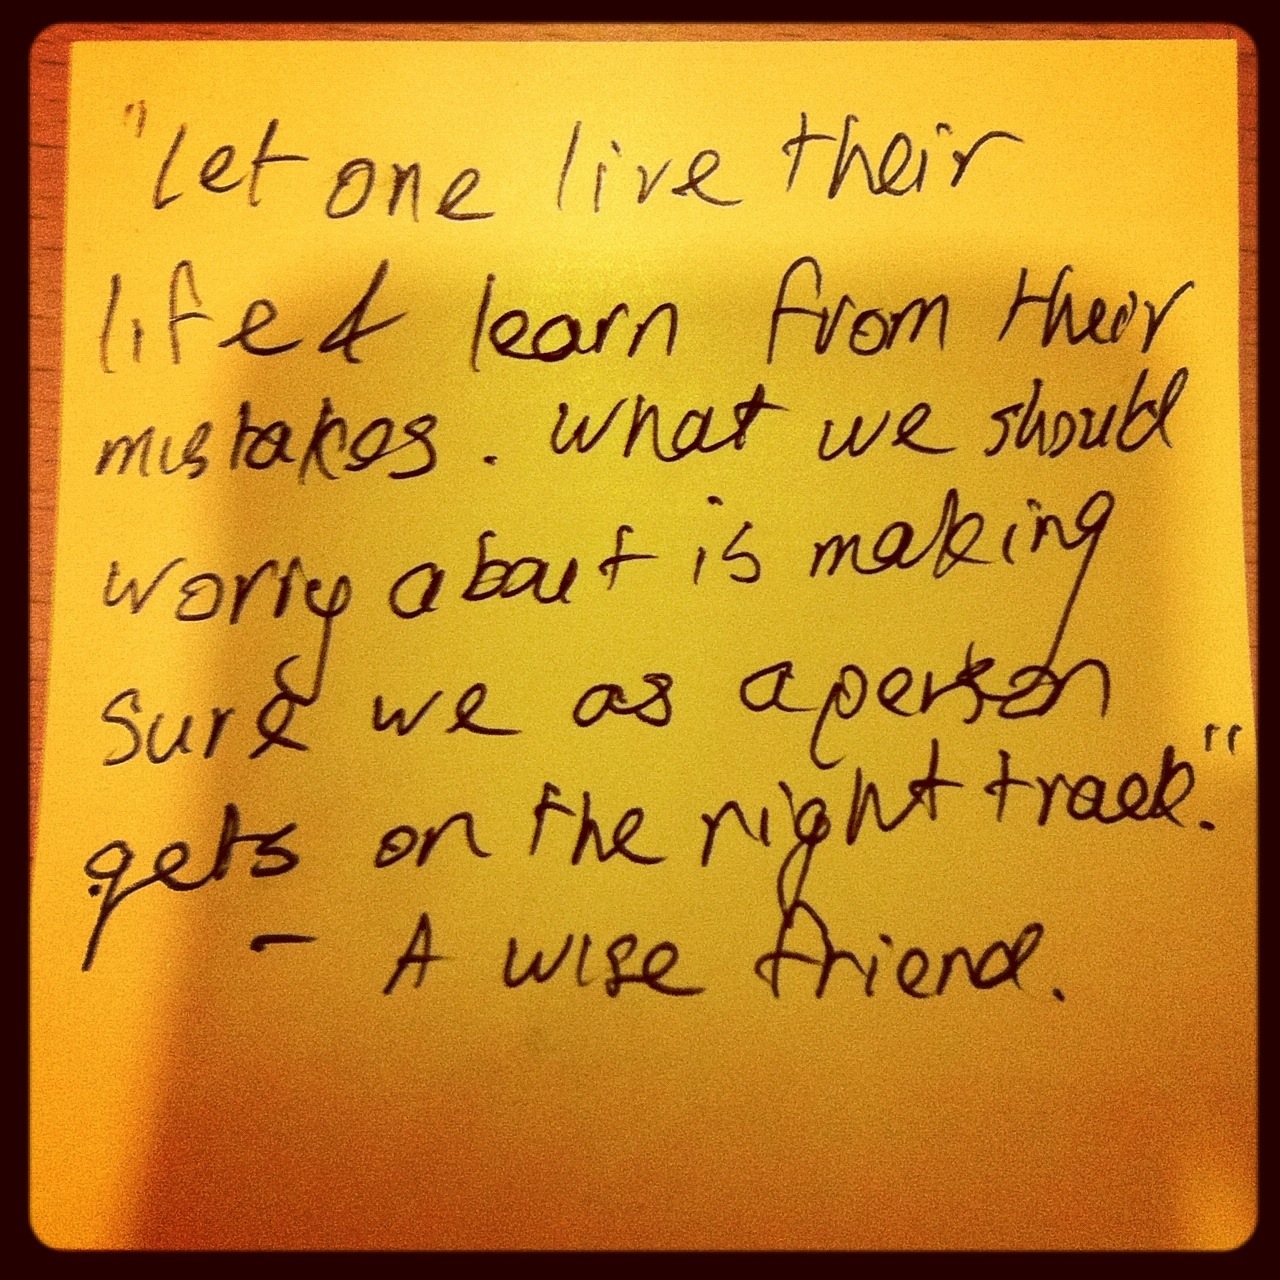 "Let one live their
life & learn from their
mistakes. What we should
worry about is making
sure we as a person
gets on the right track."
- A wise friend.